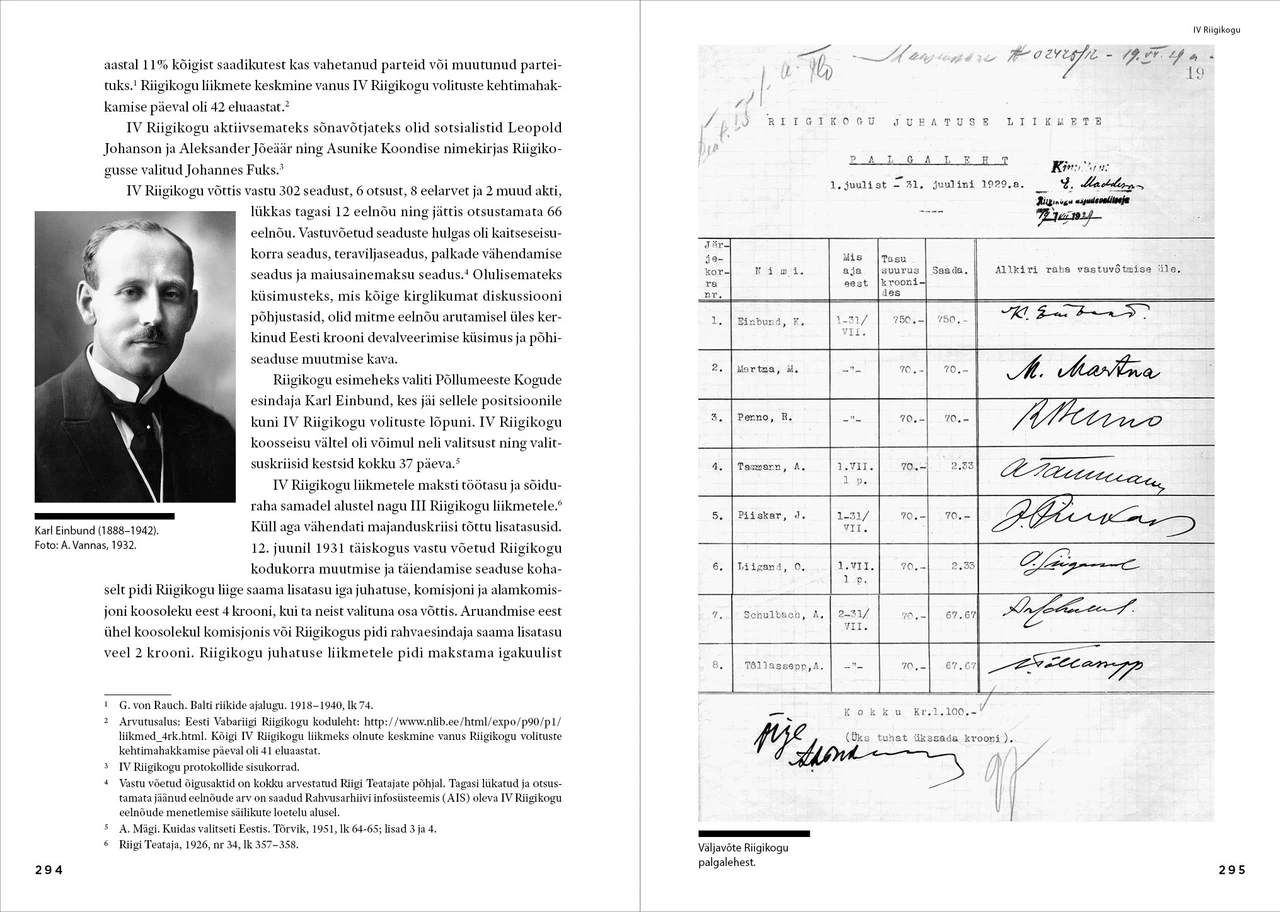 aastal 11% kõigist saadikutest kas vahetanud parteid või muutunud partei-
tuks.¹ Riigikogu liikmete keskmine vanus IV Riigikogu volituste kehtimahak-
kamise päeval oli 42 eluaastat.²
IV Riigikogu aktiivsemateks sõnavõtjateks olid sotsialistid Leopold
Johanson ja Aleksander Jõeäär ning Asunike Koondise nimekirjas Riigiko-
gusse valitud Johannes Fuks.³
IV Riigikogu võttis vastu 302 seadust, 6 otsust, 8 eelarvet ja 2 muud akti,
lükkas tagasi 12 eelnõu ning jättis otsustamata 66
eelnõu. Vastuvõetud seaduste hulgas oli kaitseseisu-
korra seadus, teraviljaseadus, palkade vähendamise
seadus ja maiusainemaksu seadus.⁴ Olulisemateks
küsimusteks, mis kõige kirglikumat diskussiooni
põhjustasid, olid mitme eelnõu arutamisel üles ker-
kinud Eesti krooni devalveerimise küsimus ja põhi-
seaduse muutmise kava.
Riigikogu esimeheks valiti Põllumeeste Kogude
esindaja Karl Einbund, kes jäi sellele positsioonile
kuni IV Riigikogu volituste lõpuni. IV Riigikogu
koosseisu vältel oli võimul neli valitsust ning valit-
suskriisid kestsid kokku 37 päeva.⁵
IV Riigikogu liikmetele maksti töötasu ja sõidu-
raha samadel alustel nagu III Riigikogu liikmetele.⁶
Küll aga vähendati majanduskriisi tõttu lisatasusid.
12. juunil 1931 täiskogus vastu võetud Riigikogu
kodukorra muutmise ja täiendamise seaduse koha-
selt pidi Riigikogu liige saama lisatasu iga juhatuse, komisjoni ja alamkomis-
joni koosoleku eest 4 krooni, kui ta neist valituna osa võttis. Aruandmise eest
ühel koosolekul komisjonis või Riigikogus pidi rahvaesindaja saama lisatasu
veel 2 krooni. Riigikogu juhatuse liikmetele pidi makstama igakuulist
Karl Einbund (1888–1942).
Foto: A. Vannas, 1932.
¹ G. von Rauch. Balti riikide ajalugu. 1918–1940, lk 74.
² Arvutusalus: Eesti Vabariigi Riigikogu koduleht: http://www.nlib.ee/html/expo/p90/p1/
liikmed_4rk.html. Kõigi IV Riigikogu liikmeks olnute keskmine vanus Riigikogu volituste
kehtimahakkamise päeval oli 41 eluaastat.
³ IV Riigikogu protokollide sisukorrad.
⁴ Vastu võetud õigusaktid on kokku arvestatud Riigi Teatajate põhjal. Tagasi lükatud ja otsus-
tamata jäänud eelnõude arv on saadud Rahvusarhiivi infosüsteemis (AIS) oleva IV Riigikogu
eelnõude menetlemise säilikute loetelu alusel.
⁵ A. Mägi. Kuidas valitseti Eestis. Tõrvik, 1951, lk 64-65; lisad 3 ja 4.
⁶ Riigi Teataja, 1926, nr 34, lk 357–358.
294
IV Riigikogu
19
RIIGIKOGU JUHATUSE LIIKMETE
PALGALEHT
1.juulist – 31. juulini 1929.a.
Riigikogu asjadevalitseja
Jär-
je-
kor-
ra
nr.
Nimi.
Mis
aja
eest
Tasu
suurus
krooni-
des
Saada.
Allkiri raha vastuvõtmise üle.
1. Einbund, K. 1-31/ VII. 750.- 750.- K. Einbund.
2. Martna, M. -"- 70.- 70.- M. Martna
3. Penno, R. -"- 70.- 70.- R Penno
4. Tammann, A. 1.VII. 1 p. 70.- 2.33 A Tammann
5. Piiskar, J. 1-31/ VII. 70.- 70.- J. Piiskar
6. Liigand, O. 1.VII. 1 p. 70.- 2.33 O. Liigand
7. Schulbach, A. 2-31/ VII. 70.- 67.67
8. Tõllassepp,A. -"- 70.- 67.67 Tõllassepp
Kokku Kr.1.100.-
(Üks tuhat ükssada krooni).
Õige
Väljavõte Riigikogu
palgalehest.
295